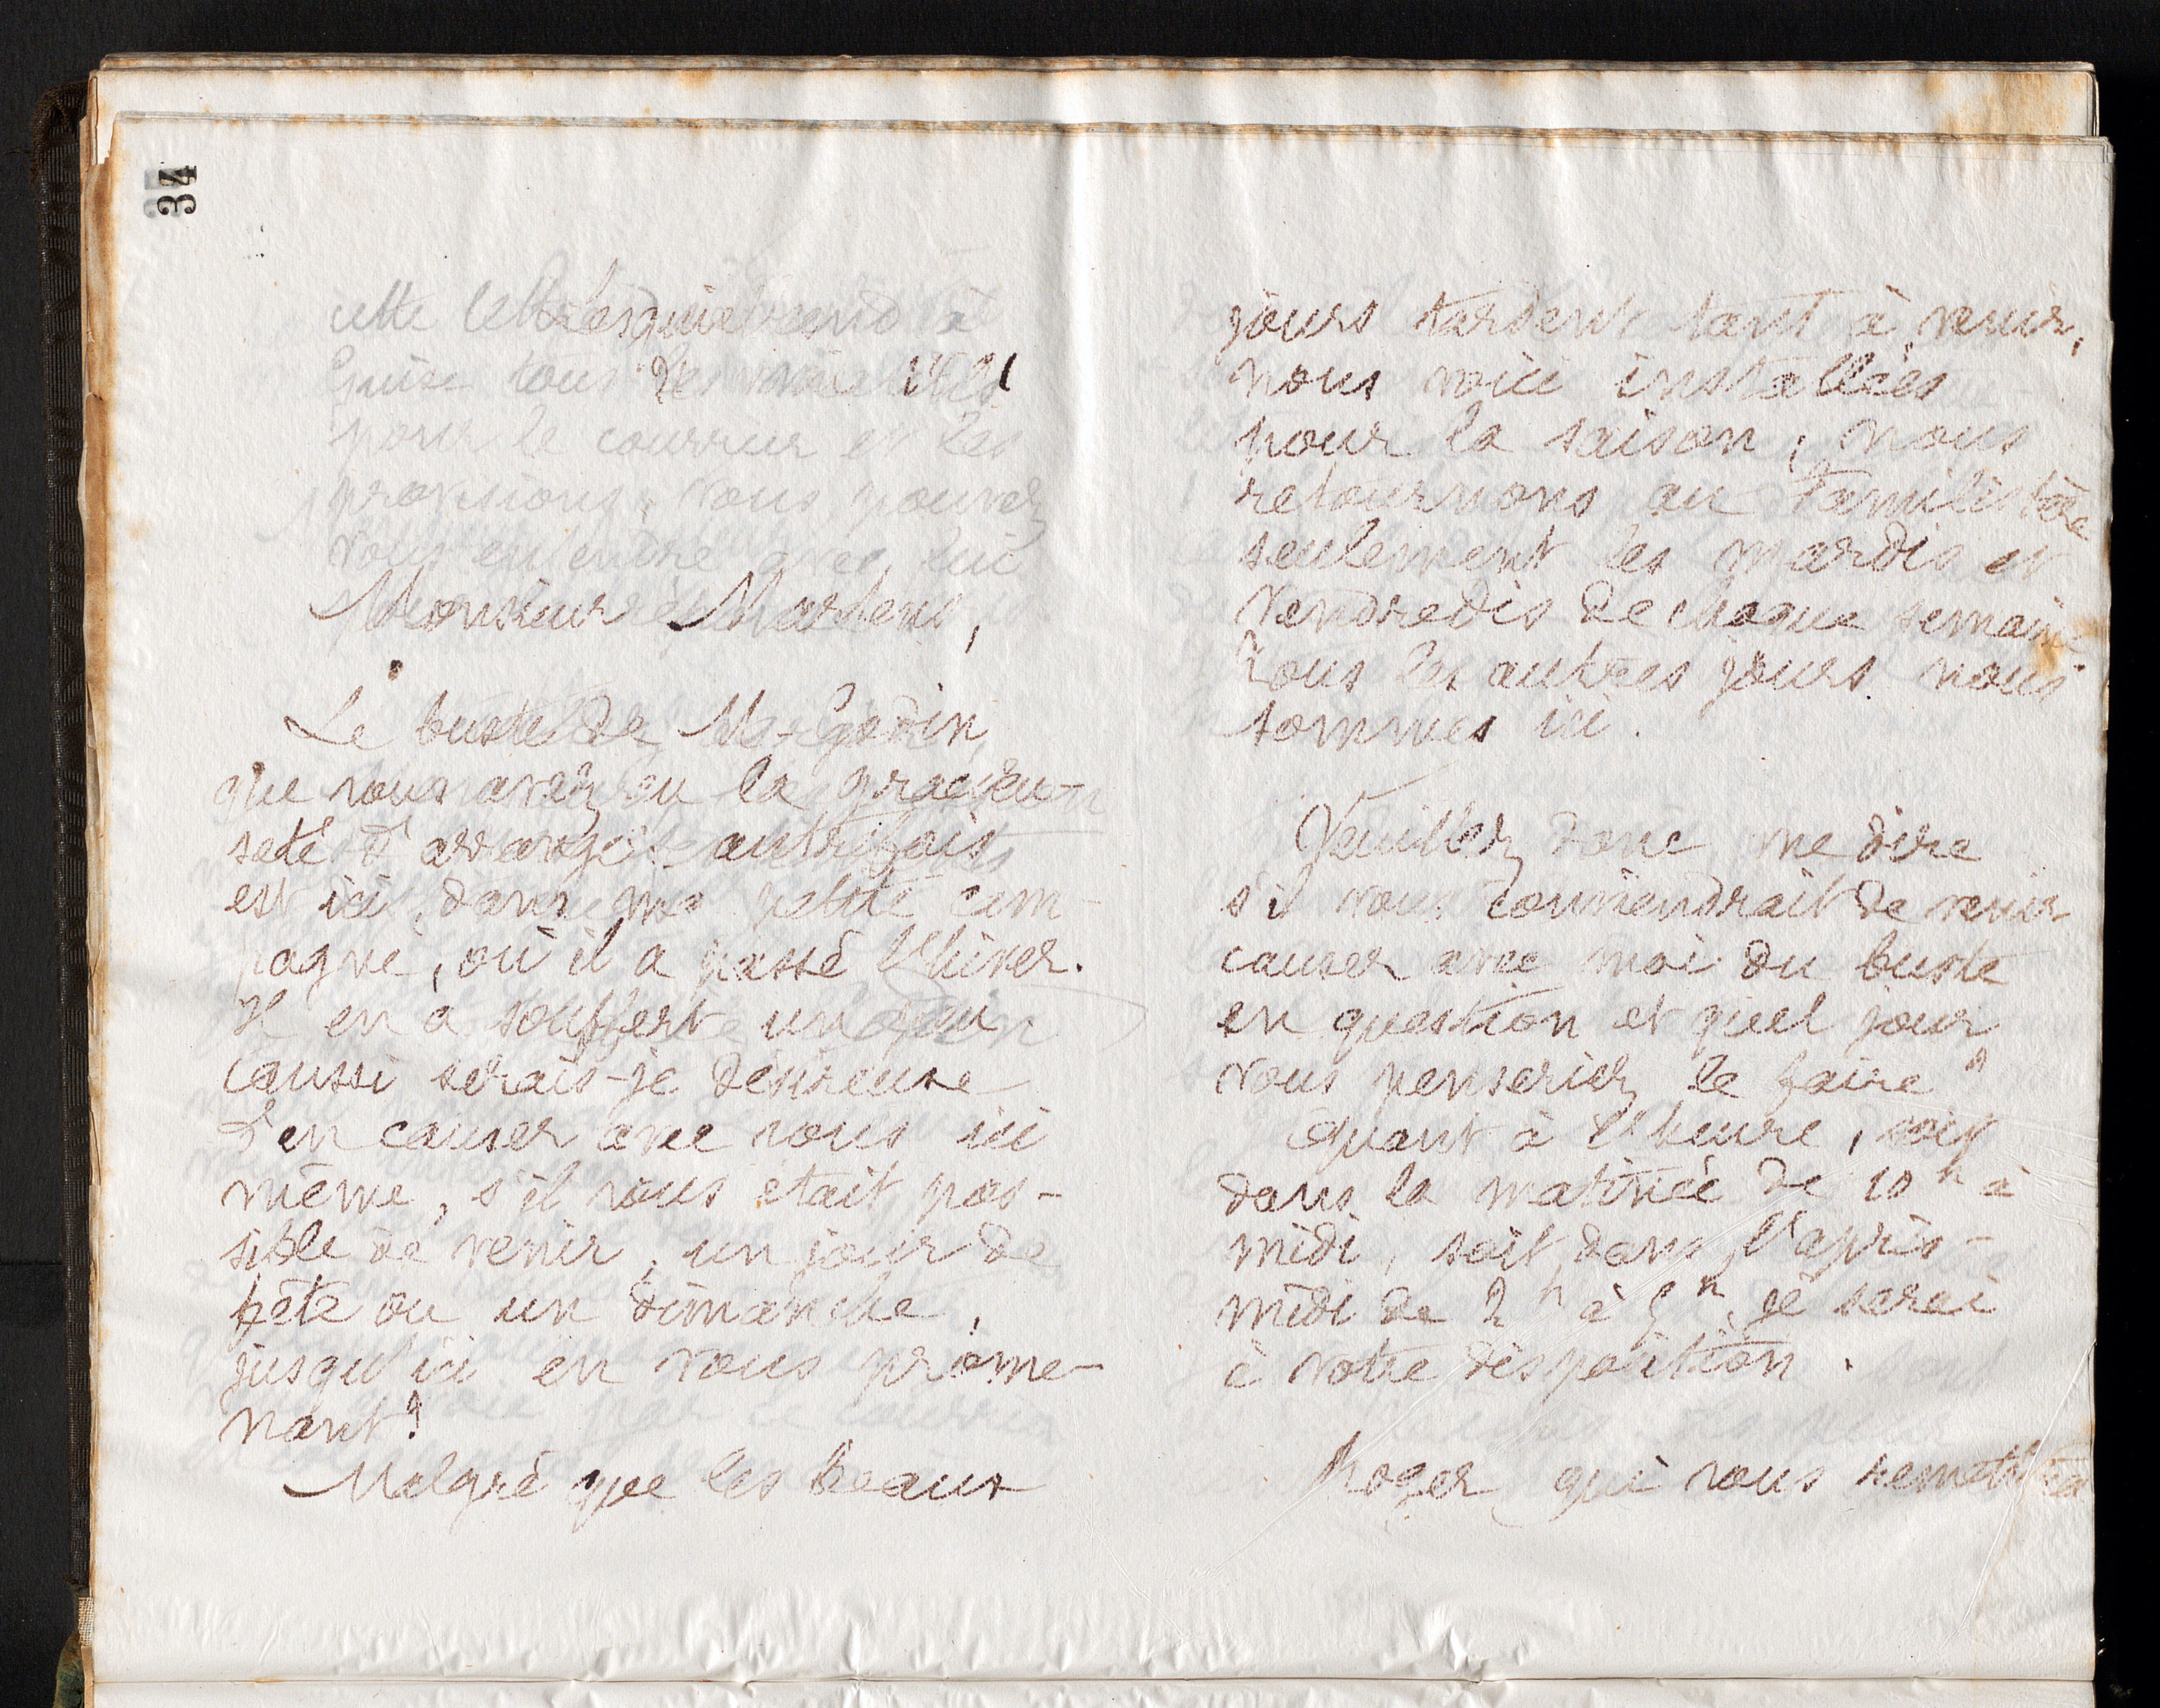 34
cette lettre
Lesquielles
Guise tous les
pour le courrier et les
provisions, vous pouvez
vous entendre avec lui
Monsieur Martens,
Le buste de Mr Godin
que vous avez eu la gracieu-
seté d'arranger autrefois
est ici, dans ma petite cam-
pagne, où il a passé l'hiver.
Il en a souffert un peu
aussi serais-je désireuse
d'en causer avec vous ici
même, s'il vous était pos-
sible de venir, un jour de
fête ou un dimanche,
jusqu'ici en vous prome-
nant!
Malgré que les beaux
jours tardent tant à venir,
nous voici installées
pour la saison; nous
retournons au Familistère
seulement les mardis et
vendredis de chaque semaine.
Tous les autres jours nous
sommes ici.
Veuillez donc me dire
s'il vous conviendrait de venir
causer avec moi du buste
en question et quel jour
vous penseriez le faire
Quant à l'heure, soit
dans la matinée de 10 h à
midi, soit dans l'après-
midi de 2 h à 5 h, je serai
à votre disposition.
Roger qui vous remettra